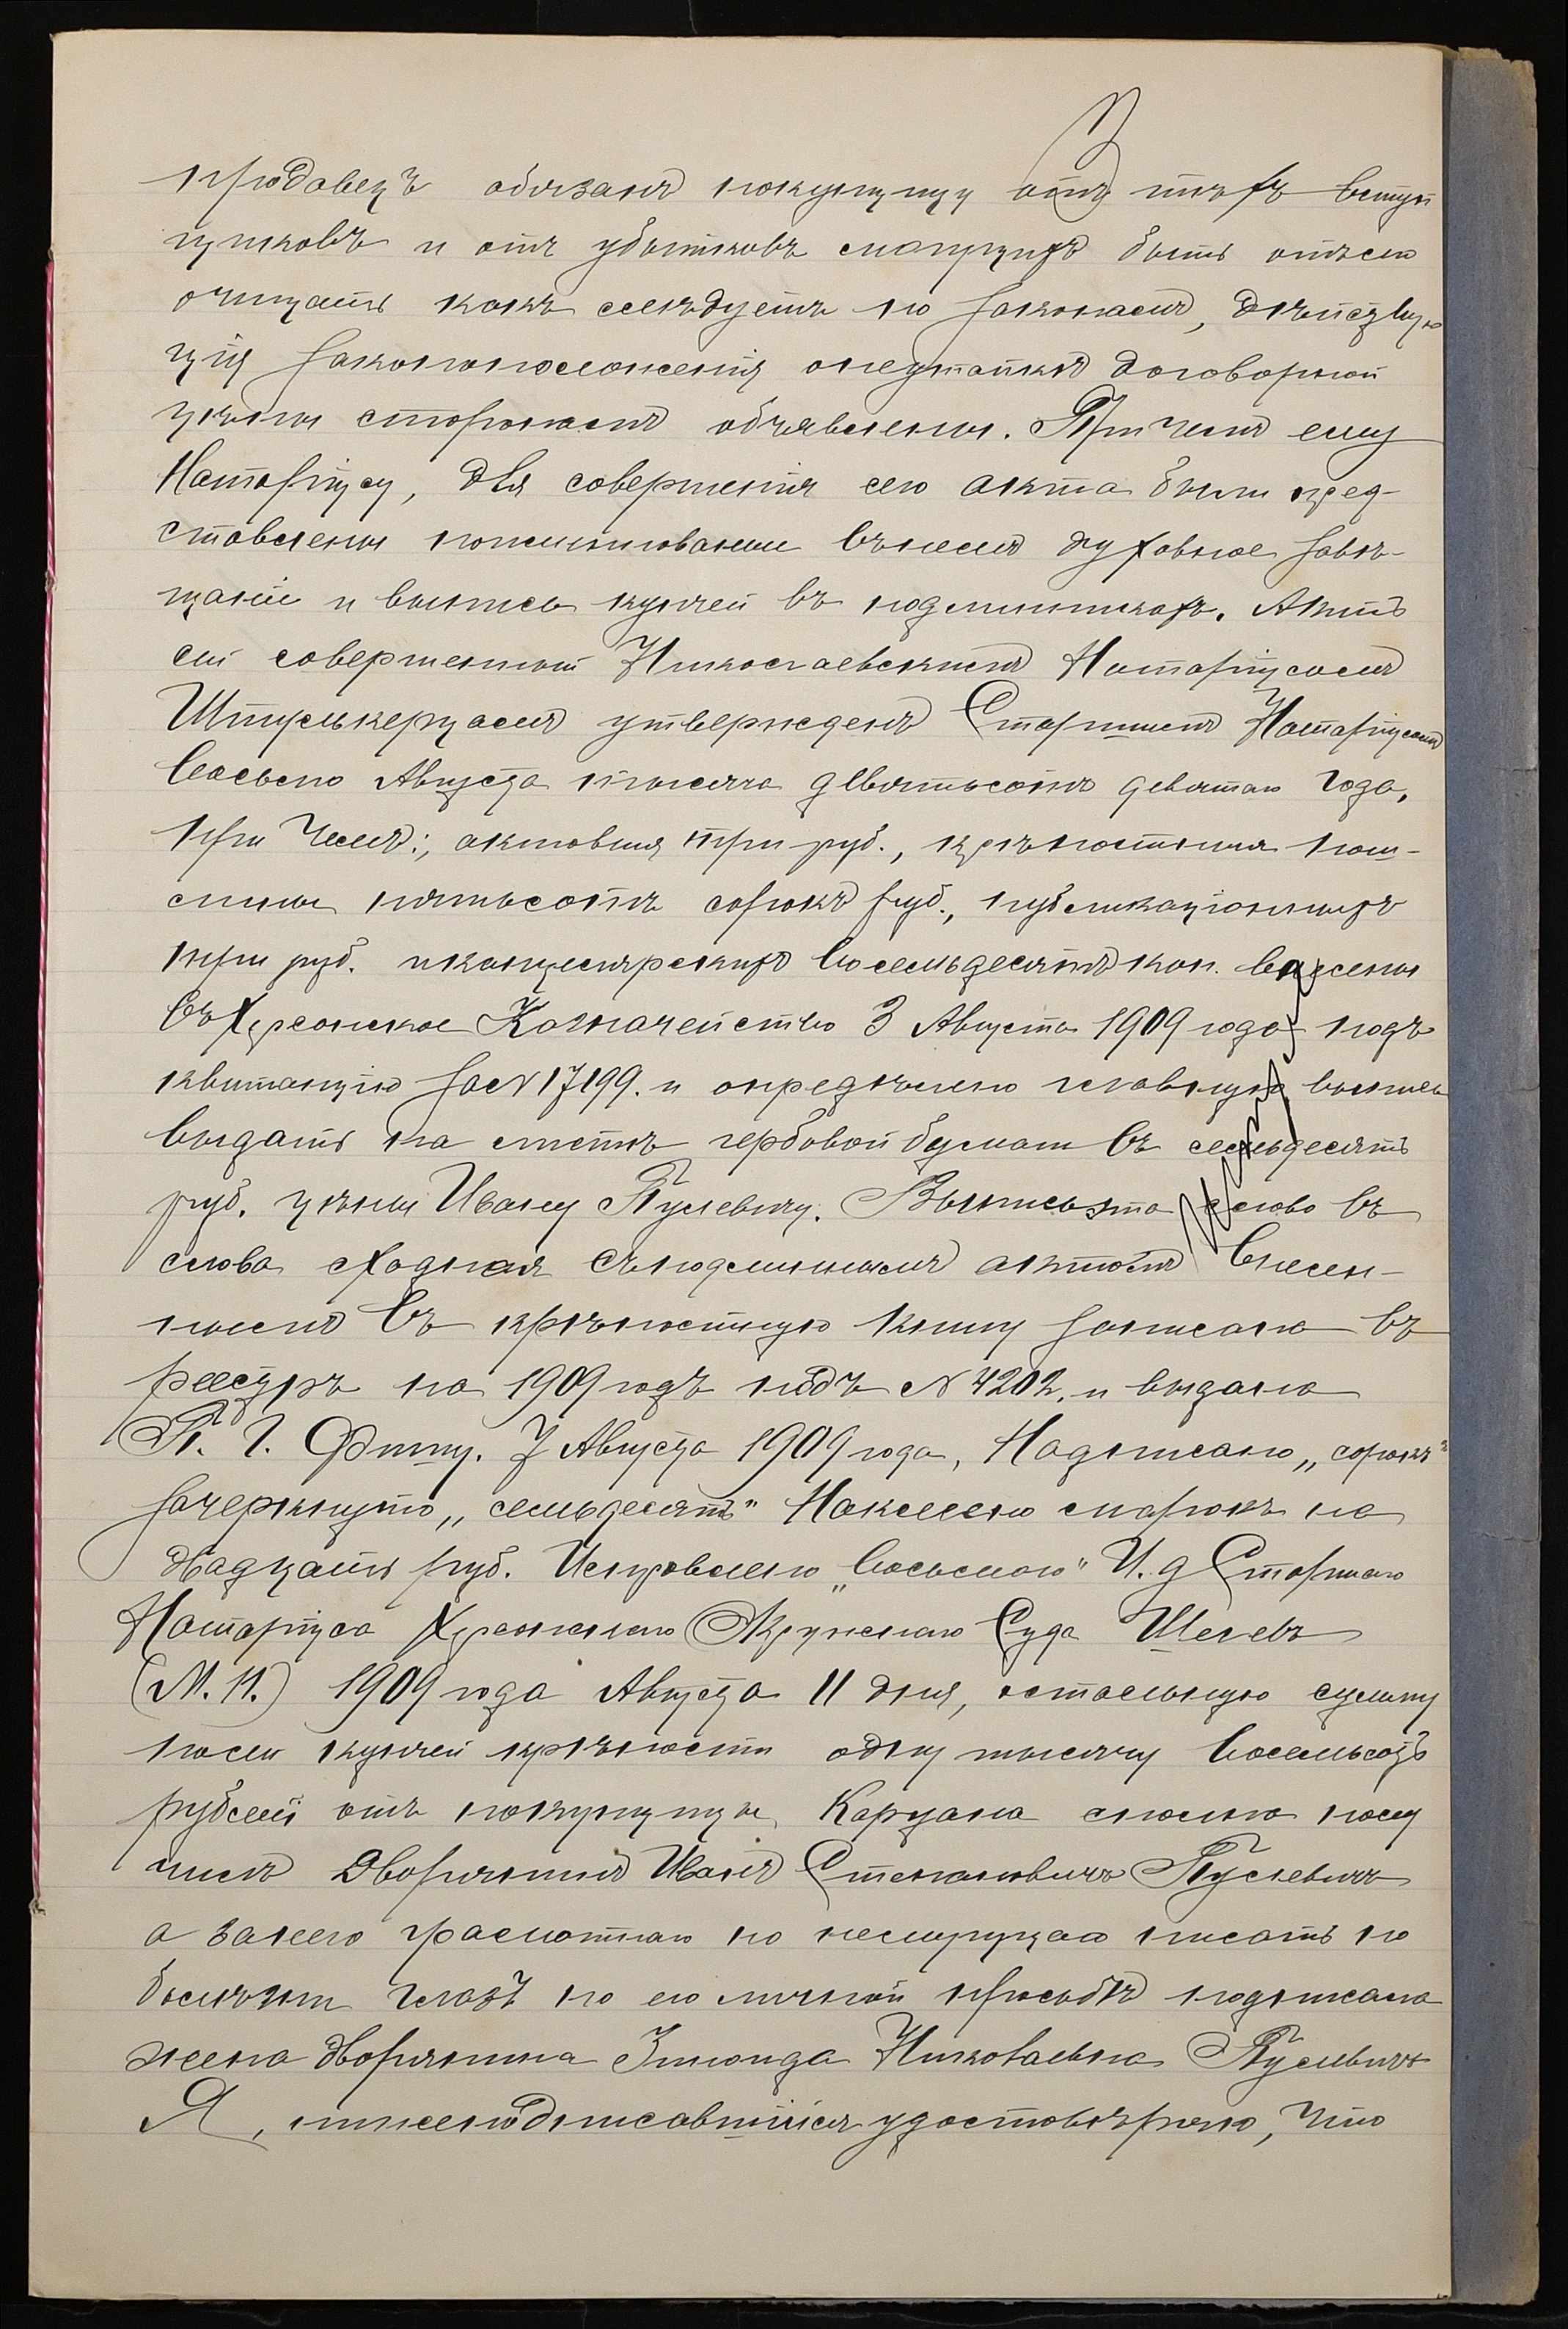 3
продавецъ обязанъ покупщицу отъ тѣхъ вступ
щиковъ и отъ убытковъ могущихъ быть отъ сего
очищать какъ слѣдуетъ по законамъ, дѣйству
щія законоположенія о неутайкѣ договорной
цѣны сторонамъ объявлены. При чемъ ему
Нотаріусу, для совершенія сего акта были пред-
ставлены поименованные въ немъ духовное завѣ-
щаніе и выпись купчей въ подлинникахъ. Актъ
сей совершенный Николаевскимъ Нотаріусомъ
Штулькерцомъ утвержденъ Старшимъ Нотаріусомъ
восьмого Августа тысяча девятьсотъ девятаго года,
при чемъ: актовыя три руб., крѣпостныя пош-
лины пятьсотъ сорокъ руб., публикаціонныхъ
три руб. и канцелярскихъ восемьдесятъ коп. внесены
въ Херсонское Казначейство 3 Августа 1909 года подъ
квитанцію за N 17199. и опредѣлено главную выпись
выдать на листѣ гербовой бумаги въ семьдесятъ
руб. цѣны Ивану Пулевичу. Выпись эта слово въ
слово сходная съ подлиннымъ актомъ внесен-
нымъ въ крѣпостную книгу записана въ
реестръ на 1909 годъ подъ N 4202. и выдана
П. Г. Финну. 7 Августа 1909 года, Надписано „сорокъ"
зачеркнуто „семьдесятъ" Наклеено марокъ на
двадцать руб. Исправлено „восьмого" И. д Старшаго
Нотаріуса Херсонскаго Окружнаго Суда Шелевъ
(М. П.) 1909 года Августа 11 дня, остальную сумму
по сей купчей крѣпости одну тысячу восемьсотъ
рублей отъ покупщицы Карцана сполна полу
чилъ Дворянинъ Иванъ Степановичъ Пулевичъ
а за него грамотнаго но немогущаго писать по
болѣзни глазъ по его личной просьбѣ подписала
жена дворянина Зинаида Николаевна Пулевичъ
Я, нижеподписавшійся удостовѣряю, что